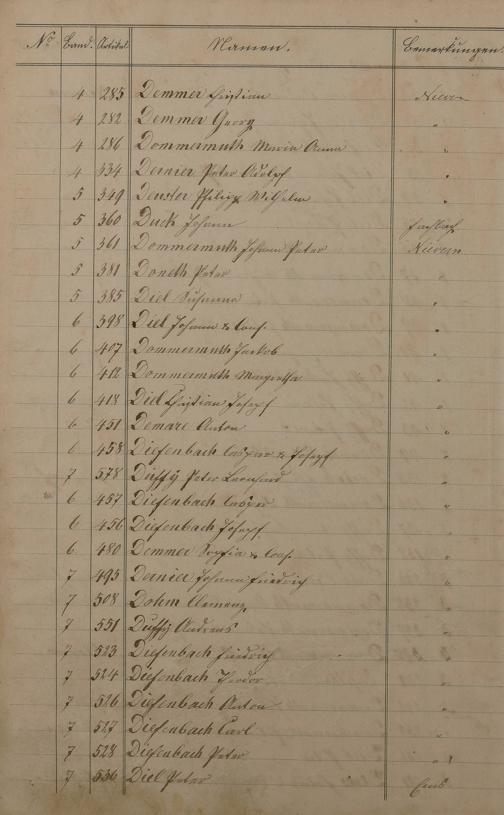 No. Band. Artikel Namen. Bemerkungen.
4 285 Demmer Christian Nievern
4 282 Demmer Georg "
4 286 Dommermuth Maria Anna "
4 334 Dernier Peter Adolph "
5 349 Deuster Philipp Wilhelm "
5 360 Duck Johann Fachbach
5 361 Dommermuth Johann Peter Nievern
5 381 Doneth Peter
5 385 Diel Susanna "
6 398 Diel Johann & Cons. "
6 407 Dommermuth Jackob "
6 412 Dommermuth Margretha "
6 418 Diel Christian Joseph "
6 451 Demare Anton "
6 458 Diefenbach Caspar & Joseph "
7 578 Duffÿ Peter Leonhard "
6 457 Diefenbach Caspar "
6 456 Diefenbach Joseph "
6 480 Demmer Sophia & Cons. "
7 495 Dernier Johann Friedrich "
7 508 Dohm Clemenz "
7 551 Duffÿ Andreas "
7 523 Diefenbach Friedrich "
7 524 Diefenbach Theodor "
7 526 Diefenbach Anton "
7 527 Diefenbach Carl "
7 528 Diefenbach Peter "
7 536 Diel Peter Ems